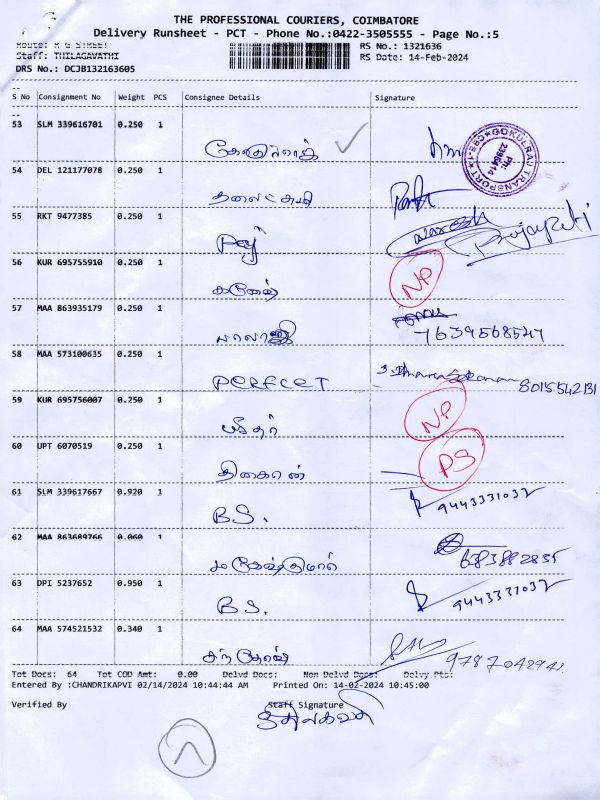 THE PROFESSIONAL COURIERS, COIMBATORE
Delivery Runsheet - PCT - Phone No.:0422-3505555 - Page No.:5
Route: R G STREET
RS No.: 1321636
Staff: THILAGAVATHI
RS Date: 14-Feb-2024
DRS No.: DCJB132163605
S No Consignment No Weight PCS Consignee Details Signature
53 SLM 339616701 0.250 1
GOKULRAJ TRANSPORT
Ph: 2395414
54 DEL 121177078 0.250 1
55 RKT 9477385 0.250 1
56 KUR 695755910 0.250 1
கணேஷ் NP
57 MAA 863935179 0.250 1
பாலாஜி 7639568547
58 MAA 573100635 0.250 1
PERFCET 8015542131
59 KUR 695756007 0.250 1
NP
60 UPT 6070519 0.250 1
PS
61 SLM 339617667 0.920 1
B.S. 9443331032
62 MAA 863689766 0.060 1
6383882835
63 DPI 5237652 0.950 1
B.S. 9443331032
64 MAA 574521532 0.340 1
சந்தோஷ் 9787042941
Tot Docs: 64 Tot COD Amt: 0.00 Delvd Docs: Non Delvd Docs: Delvy Pts:
Entered By :CHANDRIKAPVI 02/14/2024 10:44:44 AM Printed On: 14-02-2024 10:45:00
Verified By Staff Signature